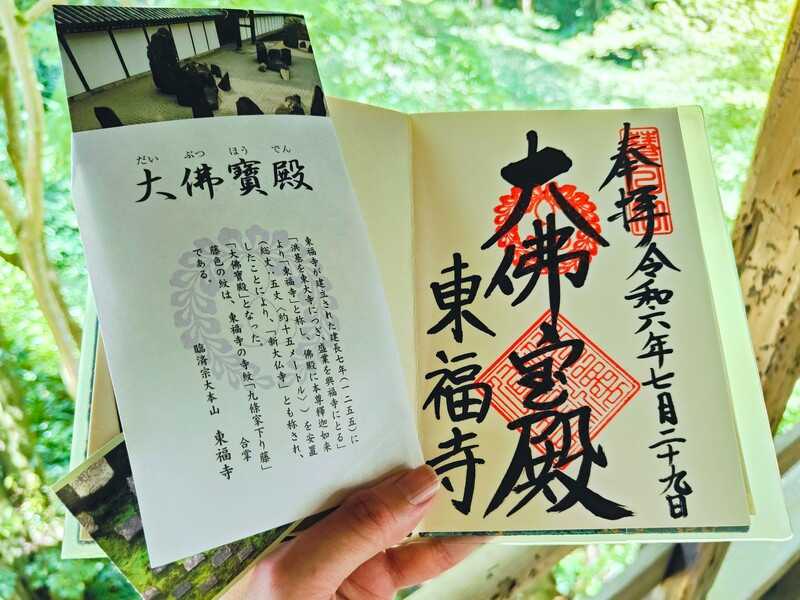 だい ぶつ ほう でん
大佛寶殿
東福寺が建立された建長七年(一二五五)に
「洪基を東大寺につぎ、盛業を興福寺にとる」
より「東福寺」と称し、佛殿に本尊釋迦如来
(総丈、五丈(約十五メートル))を安置
したことにより、「新大仏寺」とも称され、
「大佛寶殿」となった。
藤色の紋は、東福寺の寺紋「九條家下り藤」
である。
合掌
臨済宗大本山 東福寺
奉拝 令和六年七月二十九日
大佛宝殿
東福寺